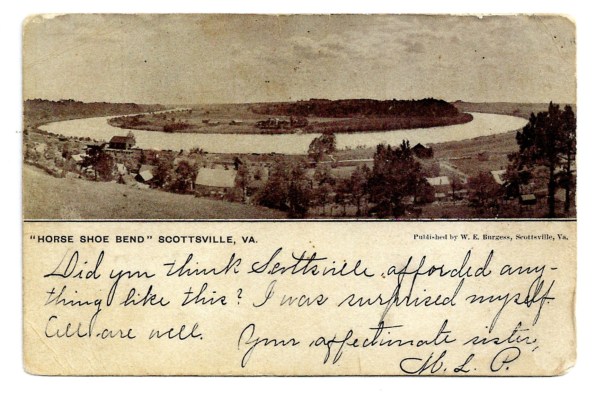 "HORSE SHOE BEND" SCOTTSVILLE, VA.
Published by W. E. Burgess, Scottsville, Va.
Did you think Scottsville afforded any-
thing like this? I was surprised myself.
All are well.
Your affectionate sister,
M. L. P.